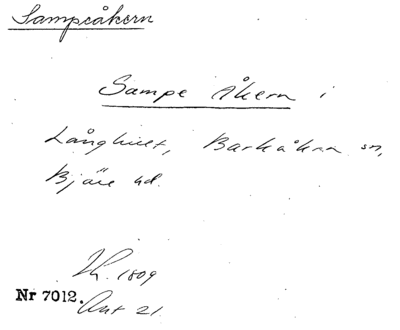 Sampeåkern
Sampe åkern i
Långhult, Barkåkra sn,
Bjäre hd.
1809
Nr 7012. Akt 21